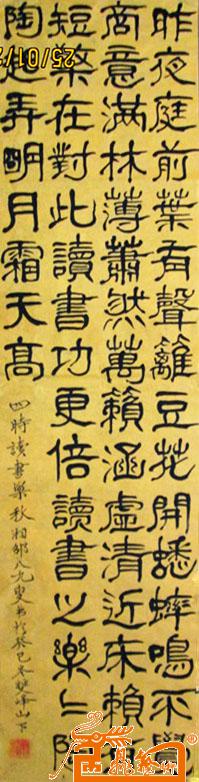 昨夜庭前葉有聲籬豆花開蟋蟀鳴不覺
商意滿林薄蕭然萬籟涵虛清近床賴有
短檠在對此讀書功更倍讀書之樂〻陶
陶起弄明月霜天高
四時讀書樂 秋 湘 八九叟書於癸巳冬 峰山下
25/01/2